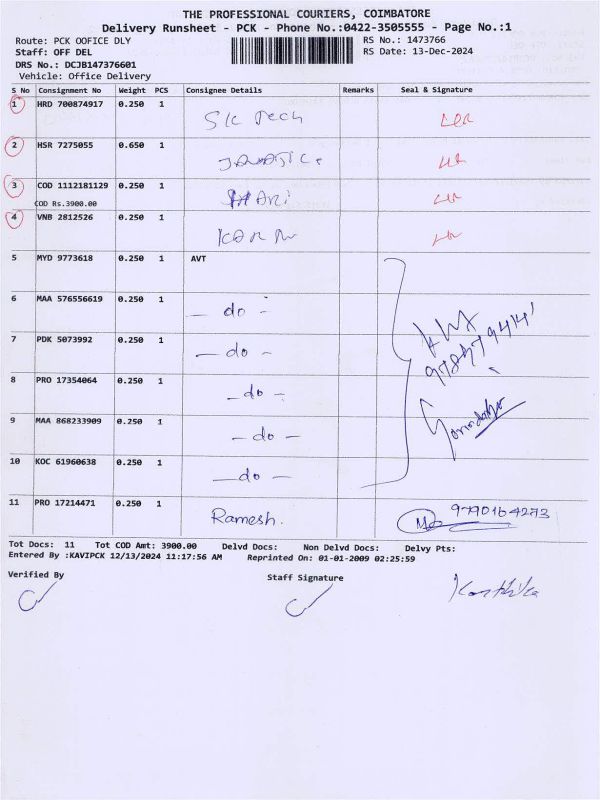 THE PROFESSIONAL COURIERS, COIMBATORE
Delivery Runsheet - PCK - Phone No.:0422-3505555 - Page No.:1
Route: PCK OOFICE DLY RS No.: 1473766
Staff: OFF DEL RS Date: 13-Dec-2024
DRS No.: DCJB147376601
Vehicle: Office Delivery
S No Consignment No Weight PCS Consignee Details Remarks Seal & Signature
1 HRD 700874917 0.250 1 SK Tech
2 HSR 7275055 0.650 1
3 COD 1112181129 0.250 1 HARI
COD Rs.3900.00
4 VNB 2812526 0.250 1
5 MYD 9773618 0.250 1 AVT
6 MAA 576556619 0.250 1 - do -
7 PDK 5073992 0.250 1 - do -
8 PRO 17354064 0.250 1 - do -
9 MAA 868233909 0.250 1 - do -
10 KOC 61960638 0.250 1 - do -
11 PRO 17214471 0.250 1 Ramesh. 9790164273
Tot Docs: 11 Tot COD Amt: 3900.00 Delvd Docs: Non Delvd Docs: Delvy Pts:
Entered By :KAVIPCK 12/13/2024 11:17:56 AM Reprinted On: 01-01-2009 02:25:59
Verified By Staff Signature Karthika